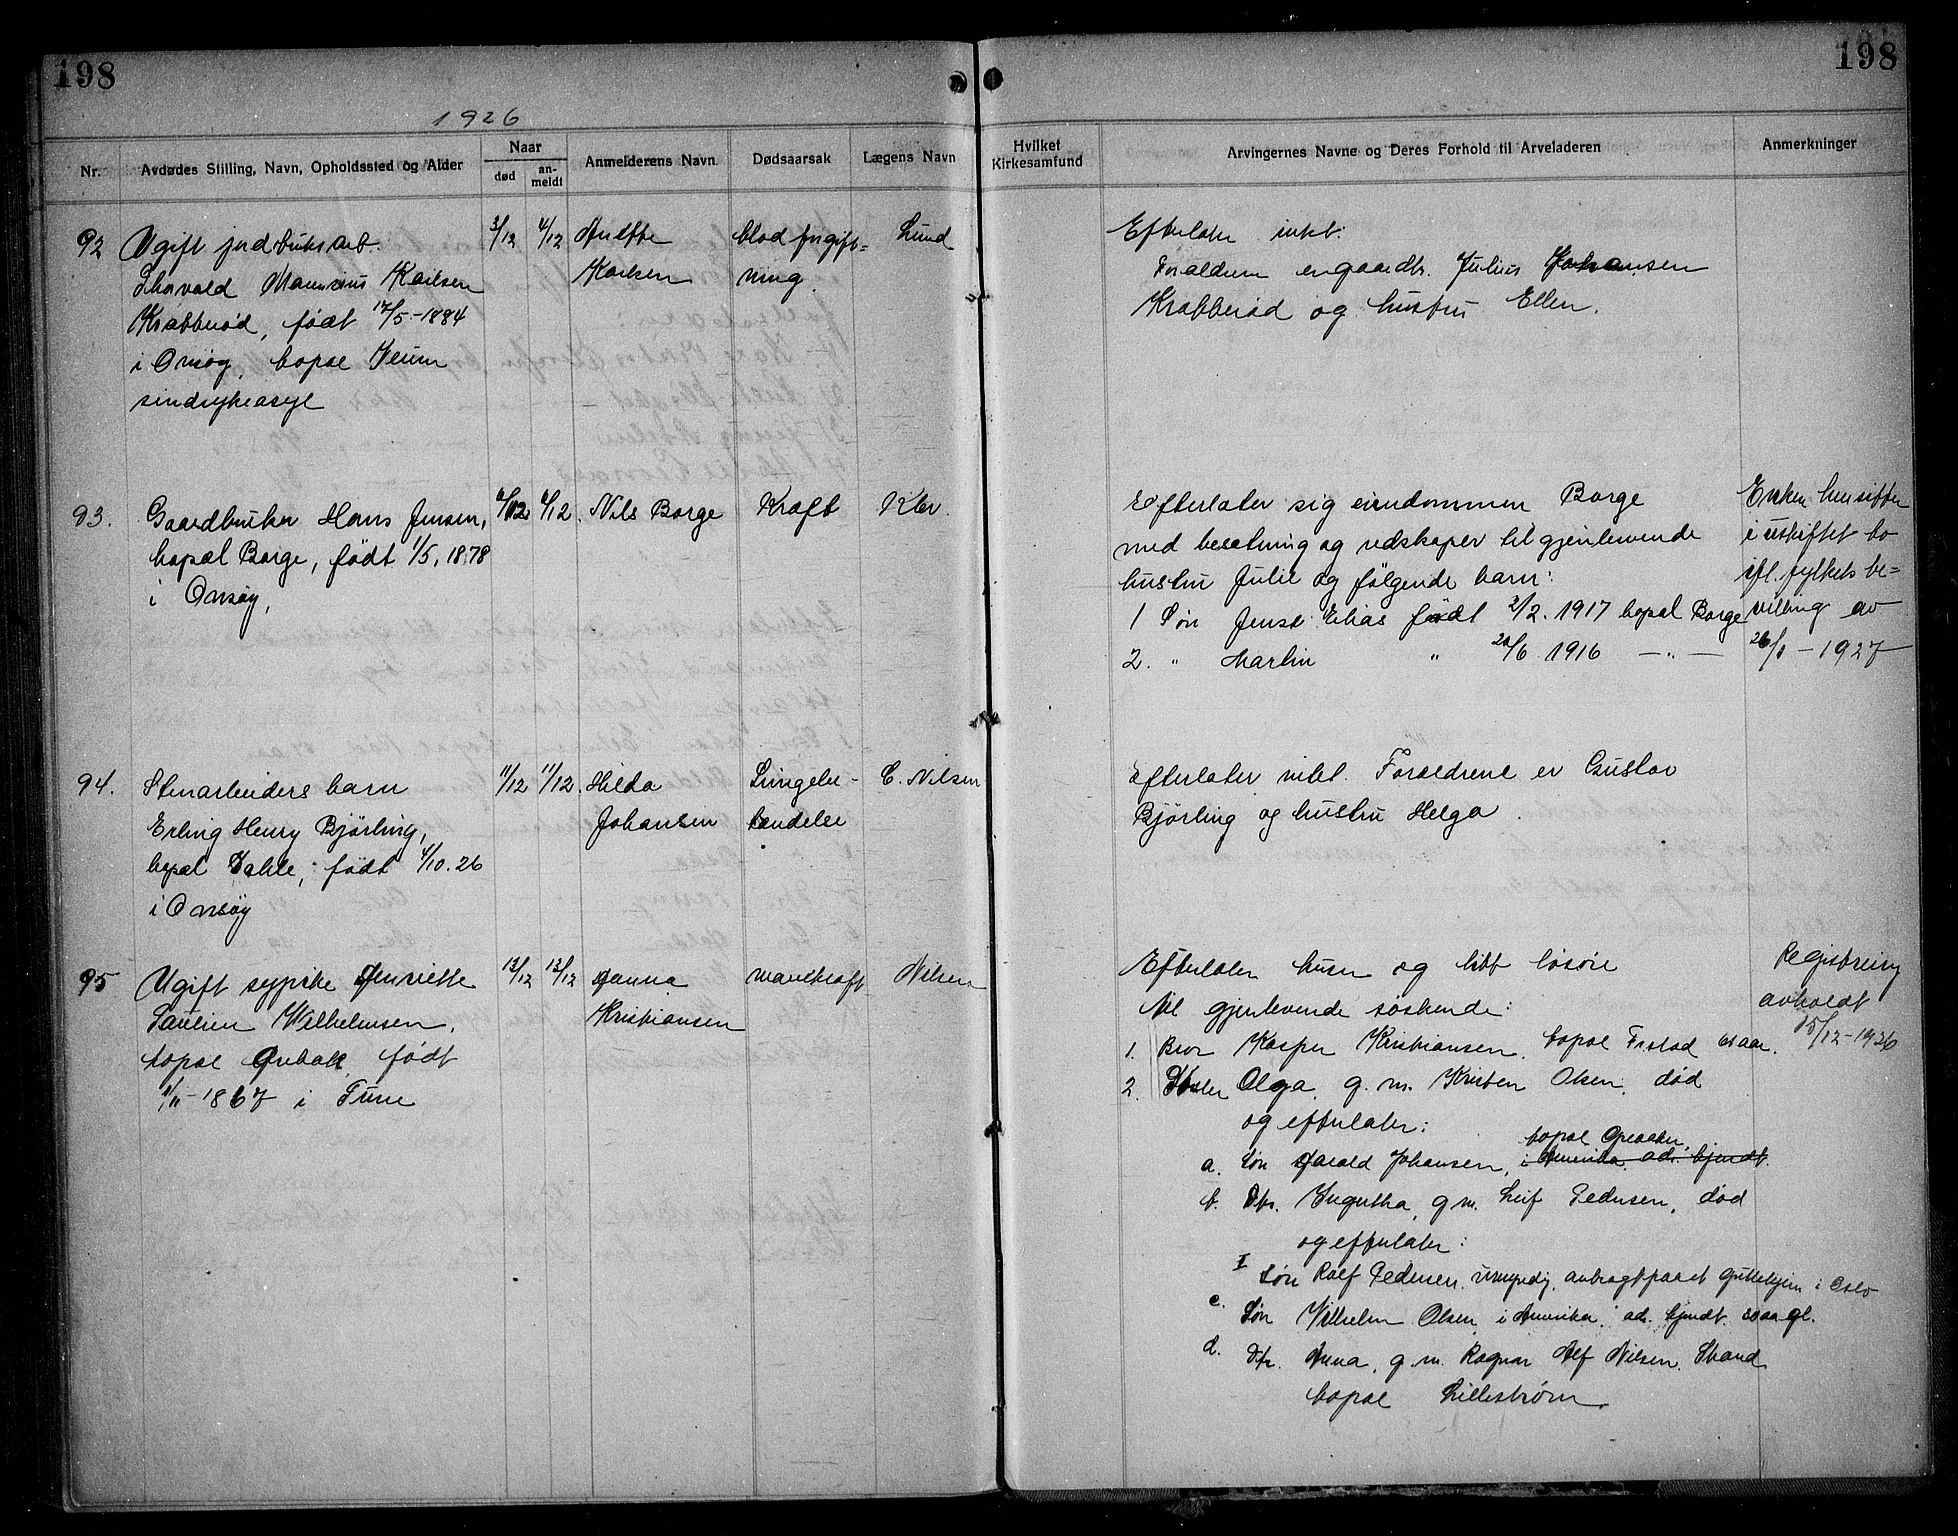 198
198
1926
Nr.
Avdødes Stilling, Navn, Opholdssted og Alder
Naar
død
an-
meldt
Anmelderens Navn
Dødsaarsak
Lægens Navn
Hvilket
Kirkesamfund
Arvingernes Navne og Deres Forhold til Arveladeren
Anmerkninger
92
Ugift jordbruksarb.
Thorvald Maurizius Karlsen
Krabberød, født 17/5-1884
i Onsøy, bopæl Veum
sindsykeasyl
3/12
4/12
Karlsen
blodforgift-
ning.
Lund
Efterlater intet.
Forældrene er gaardbr. Julius Johansen
Krabberød og hustru Ellen.
93.
Gaardbruker Hans Jensen,
bopæl Borge, født 1/5, 1878
i Onsøy,
6/12
6/12.
Nils Borge
Kræft
Kbr.
Efterlater sig eiendommen Borge
med besetning og redskaper til gjenlevende
hustru Julie og følgende barn:
1 Søn Jens Elias født 2/2. 1917 bopæl Borge
2. " Martin " 20/6 1916 —"—
Enken hensitter
i uskiftet bo
ifl. fylkets be-
villing av
26/1 - 1927
94.
Stenarbeiders barn
Erling Henry Bjørling,
bopæl Dahle, født 4/10.26
i Onsøy
11/12
11/12.
Hilda
Johansen
Lungebe-
tændelse
C. Nilsen
Efterlater intet. Forældrene er Gustav
Bjørling og hustru Helga.
95
Ugift sypike Henriette
Laurien Wilhelmsen,
bopæl Grebak, født
1/11-1867 i Tune
12/12
12/12
Hanna
Kristiansen
mavekræft
Nilsen
Efterlater huse og litt løsøre
til gjenlevende søskende:
1. Bror Kasper Kristiansen, bopæl Frostad 61 aar.
2. Søster Olga, g.m. Kristen Olsen, død
og efterlater:
bopæl Greaaker
a. Søn Harald Johansen, i Amerika, ad. kjendt.
b. Dtr. Ingertha, g.m. Leif Pedersen, død
og efterlater:
I Søn Rolf Pedersen umyndig, anbragt paa et guttehjem i Oslo
c. Søn Wilhelm Olsen i Amerika, ad. kjendt. 20 aar gl.
d. Dtr. Anna, g.m. Ragnar Alf Nilsen Strand
bopæl Lillestrøm.
Registrering
avholdt
15/12-1926